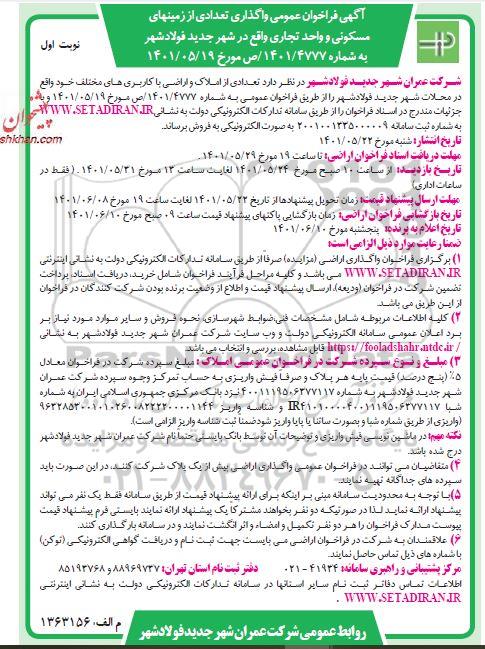 آگهی فراخوان عمومی واگذاری تعدادی از زمینهای
مسکونی و واحد تجاری واقع در شهر جدید فولادشهر
به شماره ۱۴۰۱/۴۷۷۷/ص مورخ ۱۴۰۱/۰۵/۱۹
نوبت اول
شرکت عمران شهر جدید فولادشهر در نظر دارد تعدادی از املاک و اراضی با کاربری های مختلف خود واقع
در محلات شهر جدید فولادشهر را از طریق فراخوان عمومی به شماره ۱۴۰۱/۴۷۷۷/ص مورخ ۱۴۰۱/۰۵/۱۹ و با
جزئیات مندرج در اسناد فراخوان را از طریق سامانه تدارکات الکترونیکی دولت به نشانی WWW.SETADIRAN.IR
به شماره ثبت سامانه ۲۰۰۱۰۰۱۳۳۵۰۰۰۰۰۹ به صورت الکترونیکی به فروش برساند.
تاریخ انتشار: شنبه مورخ ۱۴۰۱/۰۵/۲۲
مهلت دریافت اسناد فراخوان اراضی: تا ساعت ۱۹ مورخ ۱۴۰۱/۰۵/۲۹.
تاریخ بازدید: از ساعت ۱۰ صبح مورخ ۱۴۰۱/۰۵/۲۴ لغایت ساعت ۱۳ مورخ ۱۴۰۱/۰۵/۳۱. (فقط در
ساعات اداری)
مهلت ارسال پیشنهاد قیمت: زمان تحویل پیشنهادها از تاریخ ۱۴۰۱/۰۵/۲۲ لغایت ساعت ۱۹ مورخ ۱۴۰۱/۰۶/۰۸
تاریخ بازگشایی فراخوان اراضی: زمان بازگشایی پاکتهای پیشنهاد قیمت ساعت ۰۹ صبح مورخ ۱۴۰۱/۰۶/۱۰
تاریخ اعلام به برنده: پنجشنبه مورخ ۱۴۰۱/۰۶/۱۰
ضمنا رعایت موارد ذیل الزامی است:
۱) برگزاری فراخوان واگذاری اراضی (مزایده) صرفا از طریق سامانه تدارکات الکترونیکی دولت به نشانی اینترنتی
WWW.SETADIRAN.IR می باشد و کلیه مراحل فرآیند فراخوان شامل خرید، دریافت اسناد، پرداخت
تضمین شرکت در فراخوان (ودیعه)، ارسال پیشنهاد قیمت و اطلاع از وضعیت برنده بودن شرکت کنندگان در فراخوان
از این طریق می باشد.
۲) کلیه اطلاعات مربوطه شامل مشخصات فنی، ضوابط شهرسازی، نحوه فروش و سایر موارد مورد نیاز بر
برد اعلان عمومی سامانه الکترونیکی دولت و وب سایت شرکت عمران شهر جدید فولادشهر به نشانی
https://fooladshahr.ntdc.ir/ قابل مشاهده، بررسی و انتخاب می باشد.
۳) مبلغ و نوع سپرده شرکت در فراخوان عمومی املاک: مبلغ سپرده شرکت در فراخوان معادل
۵٪ (پنج درصد) قیمت پایه هر پلاک و صرفا فیش واریزی به حساب تمرکز وجوه سپرده شرکت عمران
شهر جدید فولادشهر به شماره ۴۰۰۱۱۱۹۵۰۶۳۷۷۱۱۷ نزد بانک مرکزی جمهوری اسلامی ایران به شماره
(واریزی از طریق شماره شبا و بصورت ساتنا یا پایا واریز شود ضمنا ثبت شناسه واریز الزامی است).
نکته مهم: در ماشین نویسی فیش واریزی و توضیحات آن توسط بانک بایستی حتما نام شرکت عمران شهر جدید فولادشهر
درج شده باشد.
۴) متقاضیان می توانند در فراخوان عمومی واگذاری اراضی بیش از یک پلاک شرکت کنند، در این صورت باید
سپرده های جداگانه تهیه نمایند.
۵) با توجه به محدودیت سامانه مبنی بر اینکه برای ارائه پیشنهاد قیمت از طریق سامانه فقط یک نفر می تواند
پیشنهاد ارائه نماید لذا در صورتیکه دو نفر بخواهند مشترکا یک پیشنهاد ارائه نمایند بایستی فرم پیشنهاد قیمت
پیوست مدارک فراخوان را هر دو نفر تکمیل و امضاء و اثر انگشت نمایند و در سامانه بارگذاری کنند.
۶) علاقمندان به شرکت در فراخوان اراضی می بایست جهت ثبت نام و دریافت گواهی الکترونیکی (توکن)
با شماره های ذیل تماس حاصل نمایند.
مرکز پشتیبانی و راهبری سامانه: ۴۱۹۳۴-۰۲۱ دفتر ثبت نام استان تهران: ۸۸۹۶۹۷۳۷ و ۸۵۱۹۳۷۶۸
اطلاعات تماس دفاتر ثبت نام سایر استانها در سامانه تدارکات الکترونیکی دولت به نشانی اینترنتی
WWW.SETADIRAN.IR.
م الف، ۱۳۶۳۱۵۶
روابط عمومی شرکت عمران شهر جدید فولادشهر